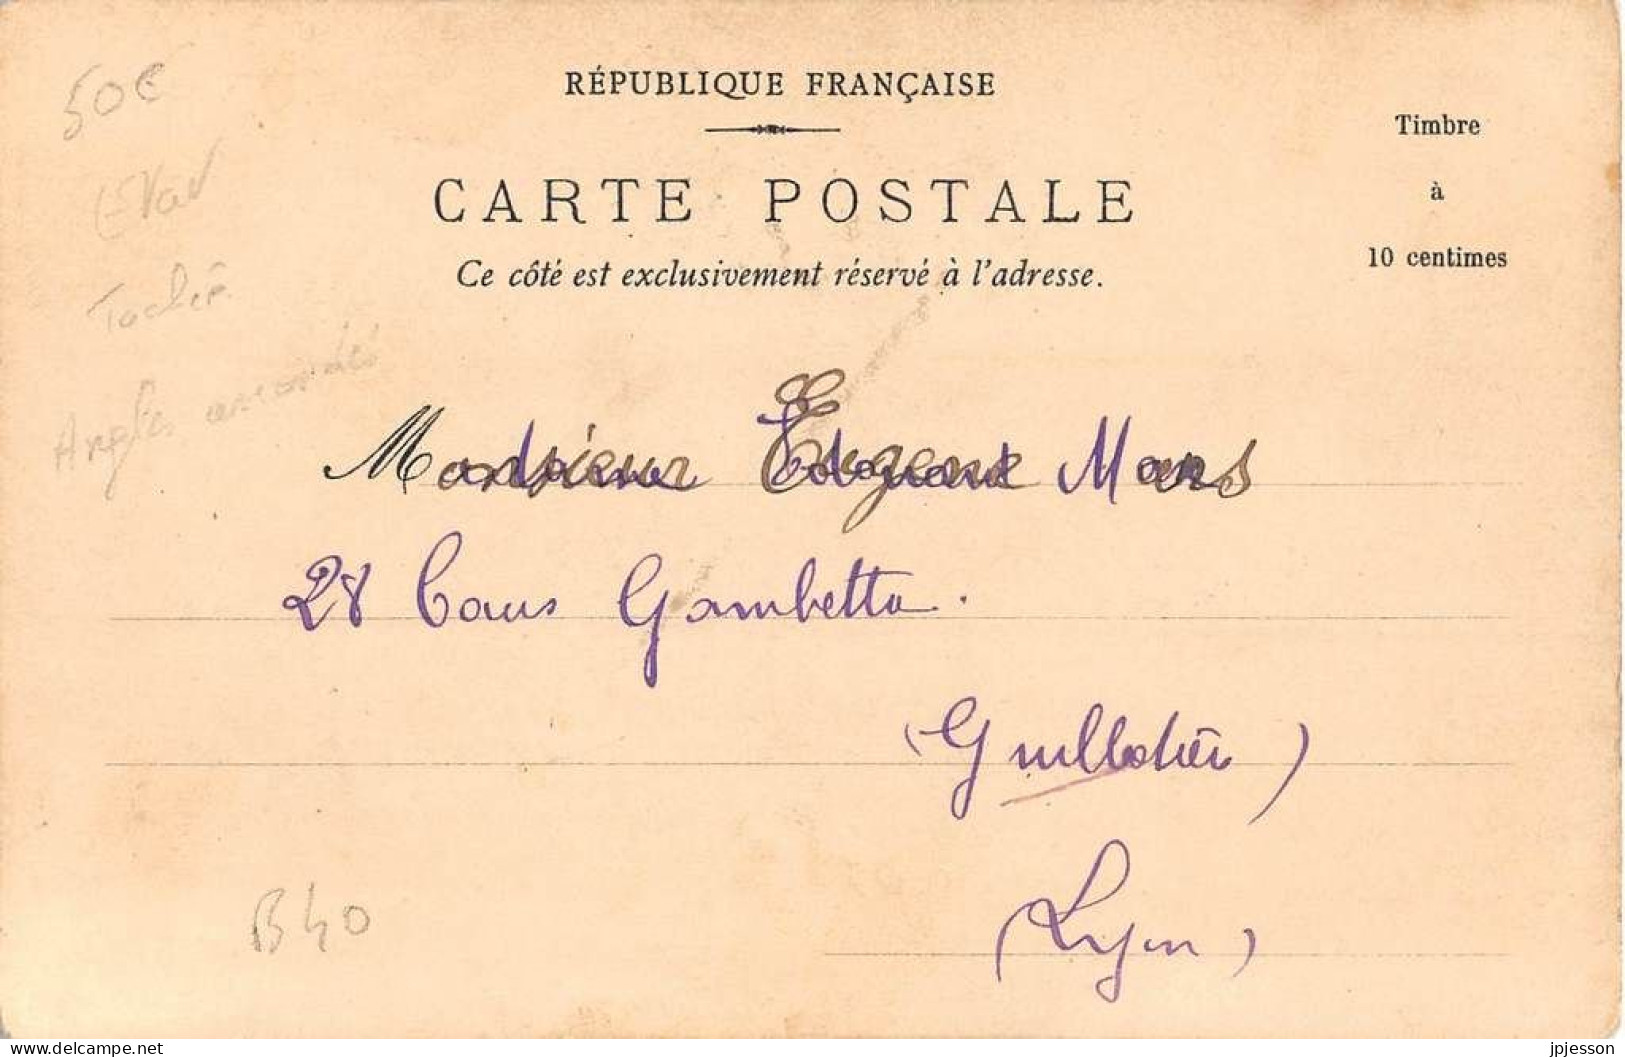 50€
RÉPUBLIQUE FRANÇAISE
Timbre
à
10 centimes
CARTE POSTALE
Ce côté est exclusivement réservé à l'adresse.
Taché
Angles
Monsieur Eugene Mars
28 Cours Gambetta.
(Guillotière)
(Lyon)
B40
delcampe.net
jpjesson